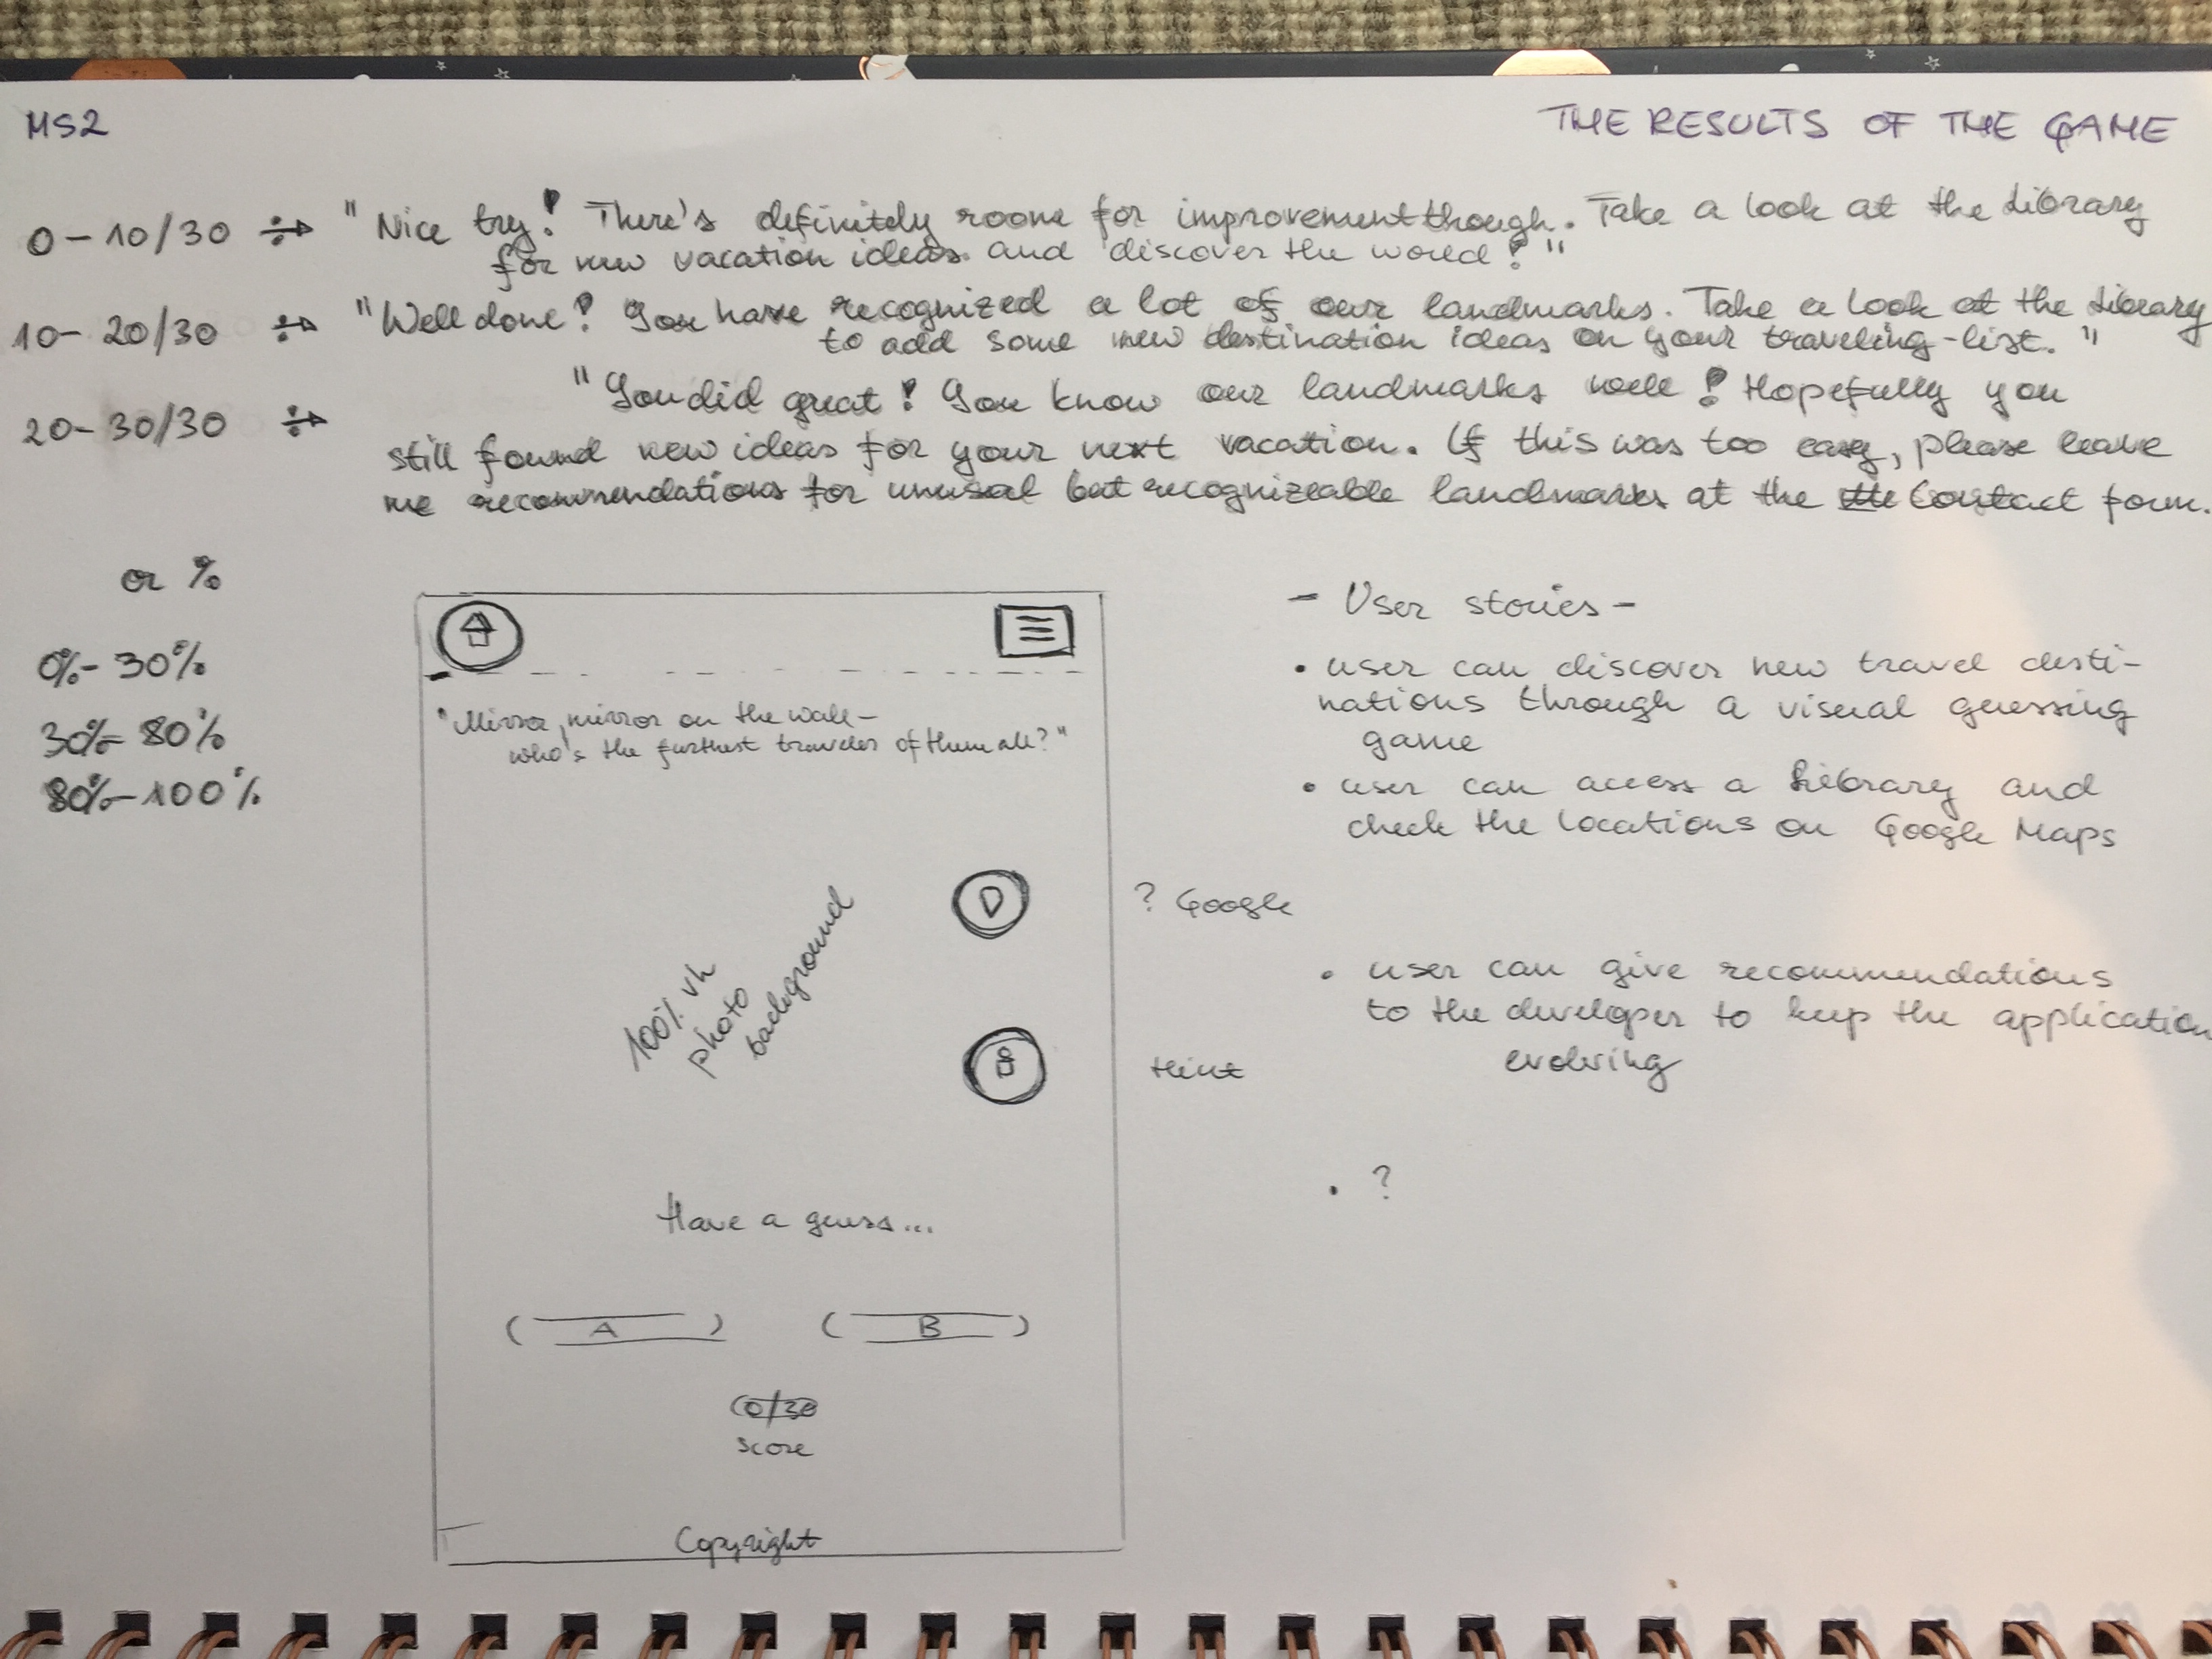 MS2
THE RESULTS OF THE GAME
0-10/30 "Nice try! There's definitely room for improvement though. Take a look at the Library
for new vacation ideas and discover the world!"
10-20/30 "Well done! You have recognized a lot of our landmarks. Take a look at the Library
to add some new destination ideas on your traveling-list."
"You did great! You know our landmarks well! Hopefully you
20-30/30
still found new ideas for your next vacation. If this was too easy, please leave
me recommendations for unusal but recognizeable landmarks at the Contact form.
or %
0%-30%
30%-80%
80%-100%
"Mirror, mirror on the wall-
who's the furthest traveler of them all?"
100% vh
photo
background
? Google
Hint
Have a guess...
A B
0/30
score
Copyright
- User stories -
• user can discover new travel desti-
nations through a visual guessing
game
• user can access a Library and
check the locations on Google Maps
• user can give recommendations
to the developer to keep the application
evolving
• ?